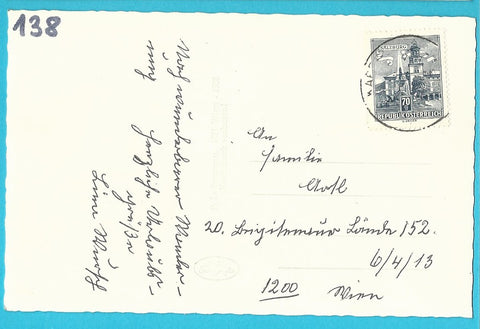 138
SALZBURG
70
REPUBLIK ÖSTERREICH
Nach wunderbarer Wander-
ung
herzliche Urlaubs-
grüße
An
Familie
20. Brigittenauer Lände 152.
6/4/13
1200 Wien